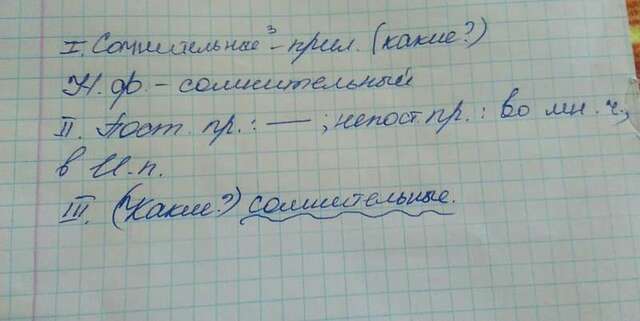 I. Сомнительные³ – прил. (какие?)
Н. ф. – сомнительный
II. Пост. пр.: — ; непост. пр.: во мн. ч.,
в И.п.
III. (Какие?) сомнительные.